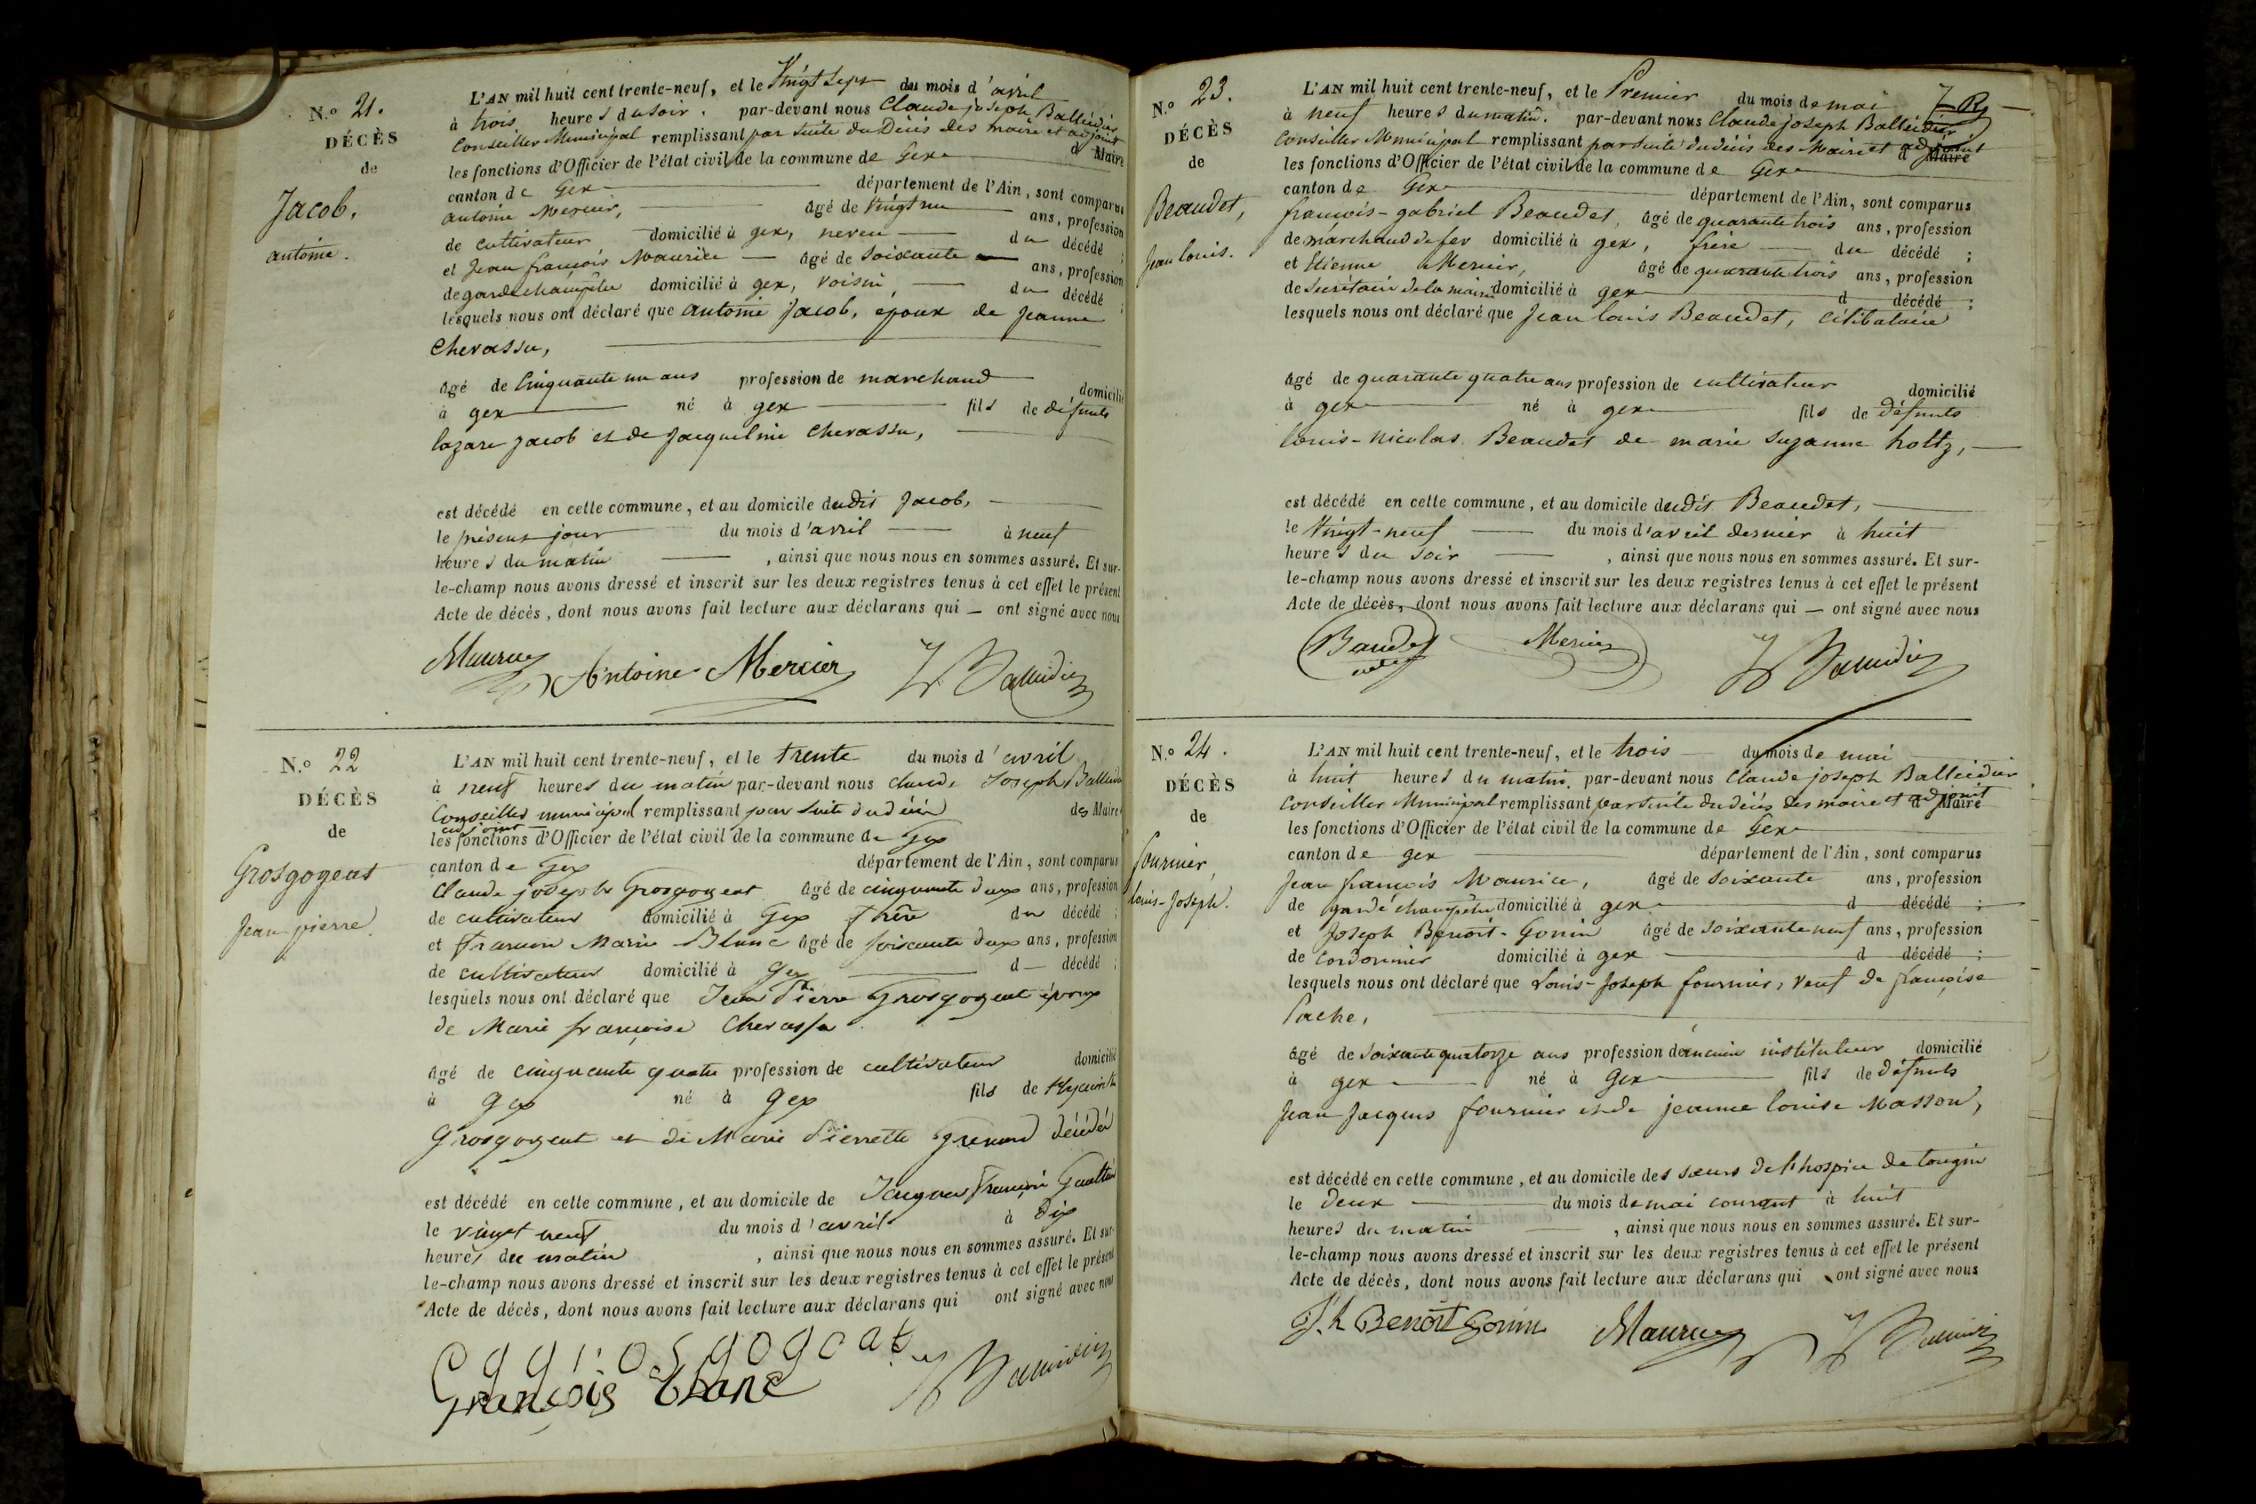 N.o 21.
DÉCÈS
de
Jacob,
antoine.
L'AN mil huit cent trente-neuf, et le Vingt sept du mois d'avril
à trois heures du soir. par-devant nous Claude joseph Balleidier
Conseiller Municipal remplissant par suite du Décès des maire et adjoint d Maire
les fonctions d'Officier de l'état civil de la commune de Gex
canton de Gex département de l'Ain, sont comparus
antoine Mercier, âgé de Vingt un ans, profession
de cultivateur domicilié à gex, neveu du décédé ;
et Jean françois Maurice âgé de soixante ans, profession
de garde champêtre domicilié à gex, voisin, du décédé ;
lesquels nous ont déclaré que antoine Jacob, époux de Jeanne
Chevassu,
âgé de Cinquante un ans profession de marchand domicilié
à gex né à gex fils de défunts
lazare jacob et de Jacqueline Chevassu,
est décédé en cette commune, et au domicile dudit Jacob,
le présent jour du mois d'avril à neuf
heures du matin , ainsi que nous nous en sommes assuré. Et sur-
le-champ nous avons dressé et inscrit sur les deux registres tenus à cet effet le présent
Acte de décès, dont nous avons fait lecture aux déclarans qui — ont signé avec nous
Maurice Antoine Mercier Balleidier
N.o 22
DÉCÈS
de
Grosgogeat
Jean pierre
L'AN mil huit cent trente-neuf, et le trente du mois d'avril
à neuf heures du matin par-devant nous claude Joseph Balleidier
Conseiller municipal remplissant par suite du décès des Maire
adjoint
les fonctions d'Officier de l'état civil de la commune de Gex
canton de Gex département de l'Ain, sont comparus
Claude joseph Grosgogeat âgé de cinquante deux ans, profession
de cultivateur domicilié à Gex frère du décédé ;
et François Marie Blanc âgé de soixante deux ans, profession
de cultivateur domicilié à Gex d — décédé ;
lesquels nous ont déclaré que Jean Pierre Grosgogeat époux
de Marie françoise Chevassu
âgé de cinquante quatre profession de cultivateur domicilié
à Gex né à Gex fils de Hyacinthe
Grosgogeat et de Marie Pierrette Grenard décédés
est décédé en cette commune, et au domicile de Jacques François Gaultier
le vingt neuf du mois d'avril à dix
heures du matin , ainsi que nous nous en sommes assuré. Et sur-
le-champ nous avons dressé et inscrit sur les deux registres tenus à cet effet le présent
Acte de décès, dont nous avons fait lecture aux déclarans qui ont signé avec nous
C g grosgogeat
François blanc Balleidier
N.o 23.
DÉCÈS
de
Beaudet,
Jean louis.
L'AN mil huit cent trente-neuf, et le Premier du mois de mai
à neuf heures du matin. par-devant nous Claude joseph Balleidier
Conseiller Municipal remplissant par suite du décès des Maire et adjoint d Maire
les fonctions d'Officier de l'état civil de la commune de Gex
canton de Gex département de l'Ain, sont comparus
françois-gabriel Beaudet, âgé de quarante trois ans, profession
de marchand de fer domicilié à gex, frère du décédé ;
et Etienne Mercier, âgé de quarante trois ans, profession
de Secrétaire de la mairie domicilié à gex d décédé ;
lesquels nous ont déclaré que Jean louis Beaudet, célibataire
âgé de quarante quatre ans profession de cultivateur domicilié
à gex né à gex fils de défunts
louis-nicolas Beaudet de marie suzanne holtz,
est décédé en cette commune, et au domicile dudit Beaudet,
le Vingt-neuf du mois d'avril dernier à huit
heures du soir , ainsi que nous nous en sommes assuré. Et sur-
le-champ nous avons dressé et inscrit sur les deux registres tenus à cet effet le présent
Acte de décès, dont nous avons fait lecture aux déclarans qui — ont signé avec nous
Baudet Mercier Balleidier
N.o 24.
DÉCÈS
de
fournier,
louis-Joseph.
L'AN mil huit cent trente-neuf, et le trois du mois de mai
à huit heures du matin. par-devant nous Claude joseph Balleidier
Conseiller Municipal remplissant par suite du décès des maire et adjoint d Maire
les fonctions d'Officier de l'état civil de la commune de Gex
canton de gex département de l'Ain, sont comparus
Jean françois Maurice, âgé de soixante ans, profession
de garde champêtre domicilié à gex d décédé ;
et Joseph Benoît-Gonin âgé de soixante neuf ans, profession
de Cordonnier domicilié à gex d décédé ;
lesquels nous ont déclaré que Louis-Joseph fournier, veuf de françoise
Pache,
âgé de soixante quatorze ans profession d'ancien instituteur domicilié
à gex né à Gex fils de défunts
Jean Jacques fournier et de jeanne louise Masson,
est décédé en cette commune, et au domicile des sœurs de l'hospice de tougin
le Deux du mois de mai courant à huit
heures du matin , ainsi que nous nous en sommes assuré. Et sur-
le-champ nous avons dressé et inscrit sur les deux registres tenus à cet effet le présent
Acte de décès, dont nous avons fait lecture aux déclarans qui ont signé avec nous
J.h Benoît Gonin Maurice Balleidier